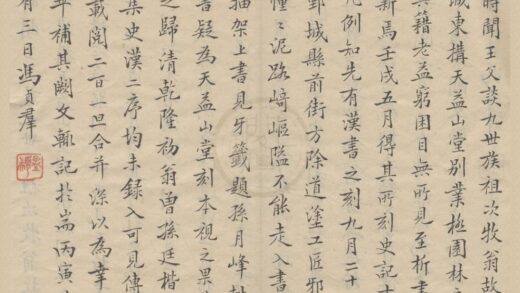 時聞王父談九世族祖次牧翁故
城東搆天益山堂別業極園林
籍老益窮困目無所見至析書
新焉壬戌五月得其所刻史記十
凡例知先有漢書之刻九月二十
鄞城縣前街方除道塗工匠邪
憧泥路崎嶇隘不能走入書
架上書見牙籤題孫月峰
書疑為天益山堂刻本視之果
之歸清乾隆初翁曾孫廷楷
集史漢二序均未錄入可見傳
載閱二百一旦合并深以為幸
年補其闕文輙記於耑丙寅
有三日馮貞羣